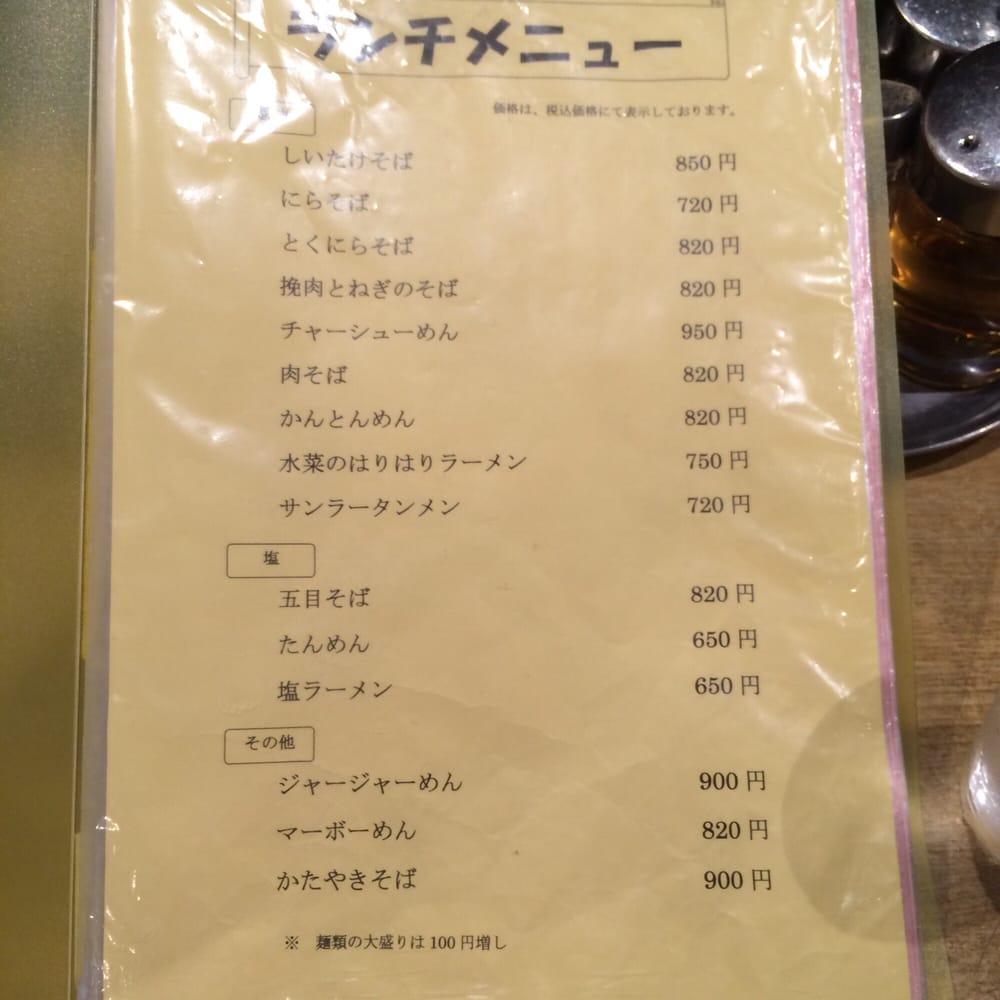 ランチメニュー
価格は、税込価格にて表示しております。
しいたけそば 850円
にらそば 720円
とくにらそば 820円
挽肉とねぎのそば 820円
チャーシューめん 950円
肉そば 820円
かんとんめん 820円
水菜のはりはりラーメン 750円
サンラータンメン 720円
塩
五目そば 820円
たんめん 650円
塩ラーメン 650円
その他
ジャージャーめん 900円
マーボーめん 820円
かたやきそば 900円
※ 麺類の大盛りは100円増し